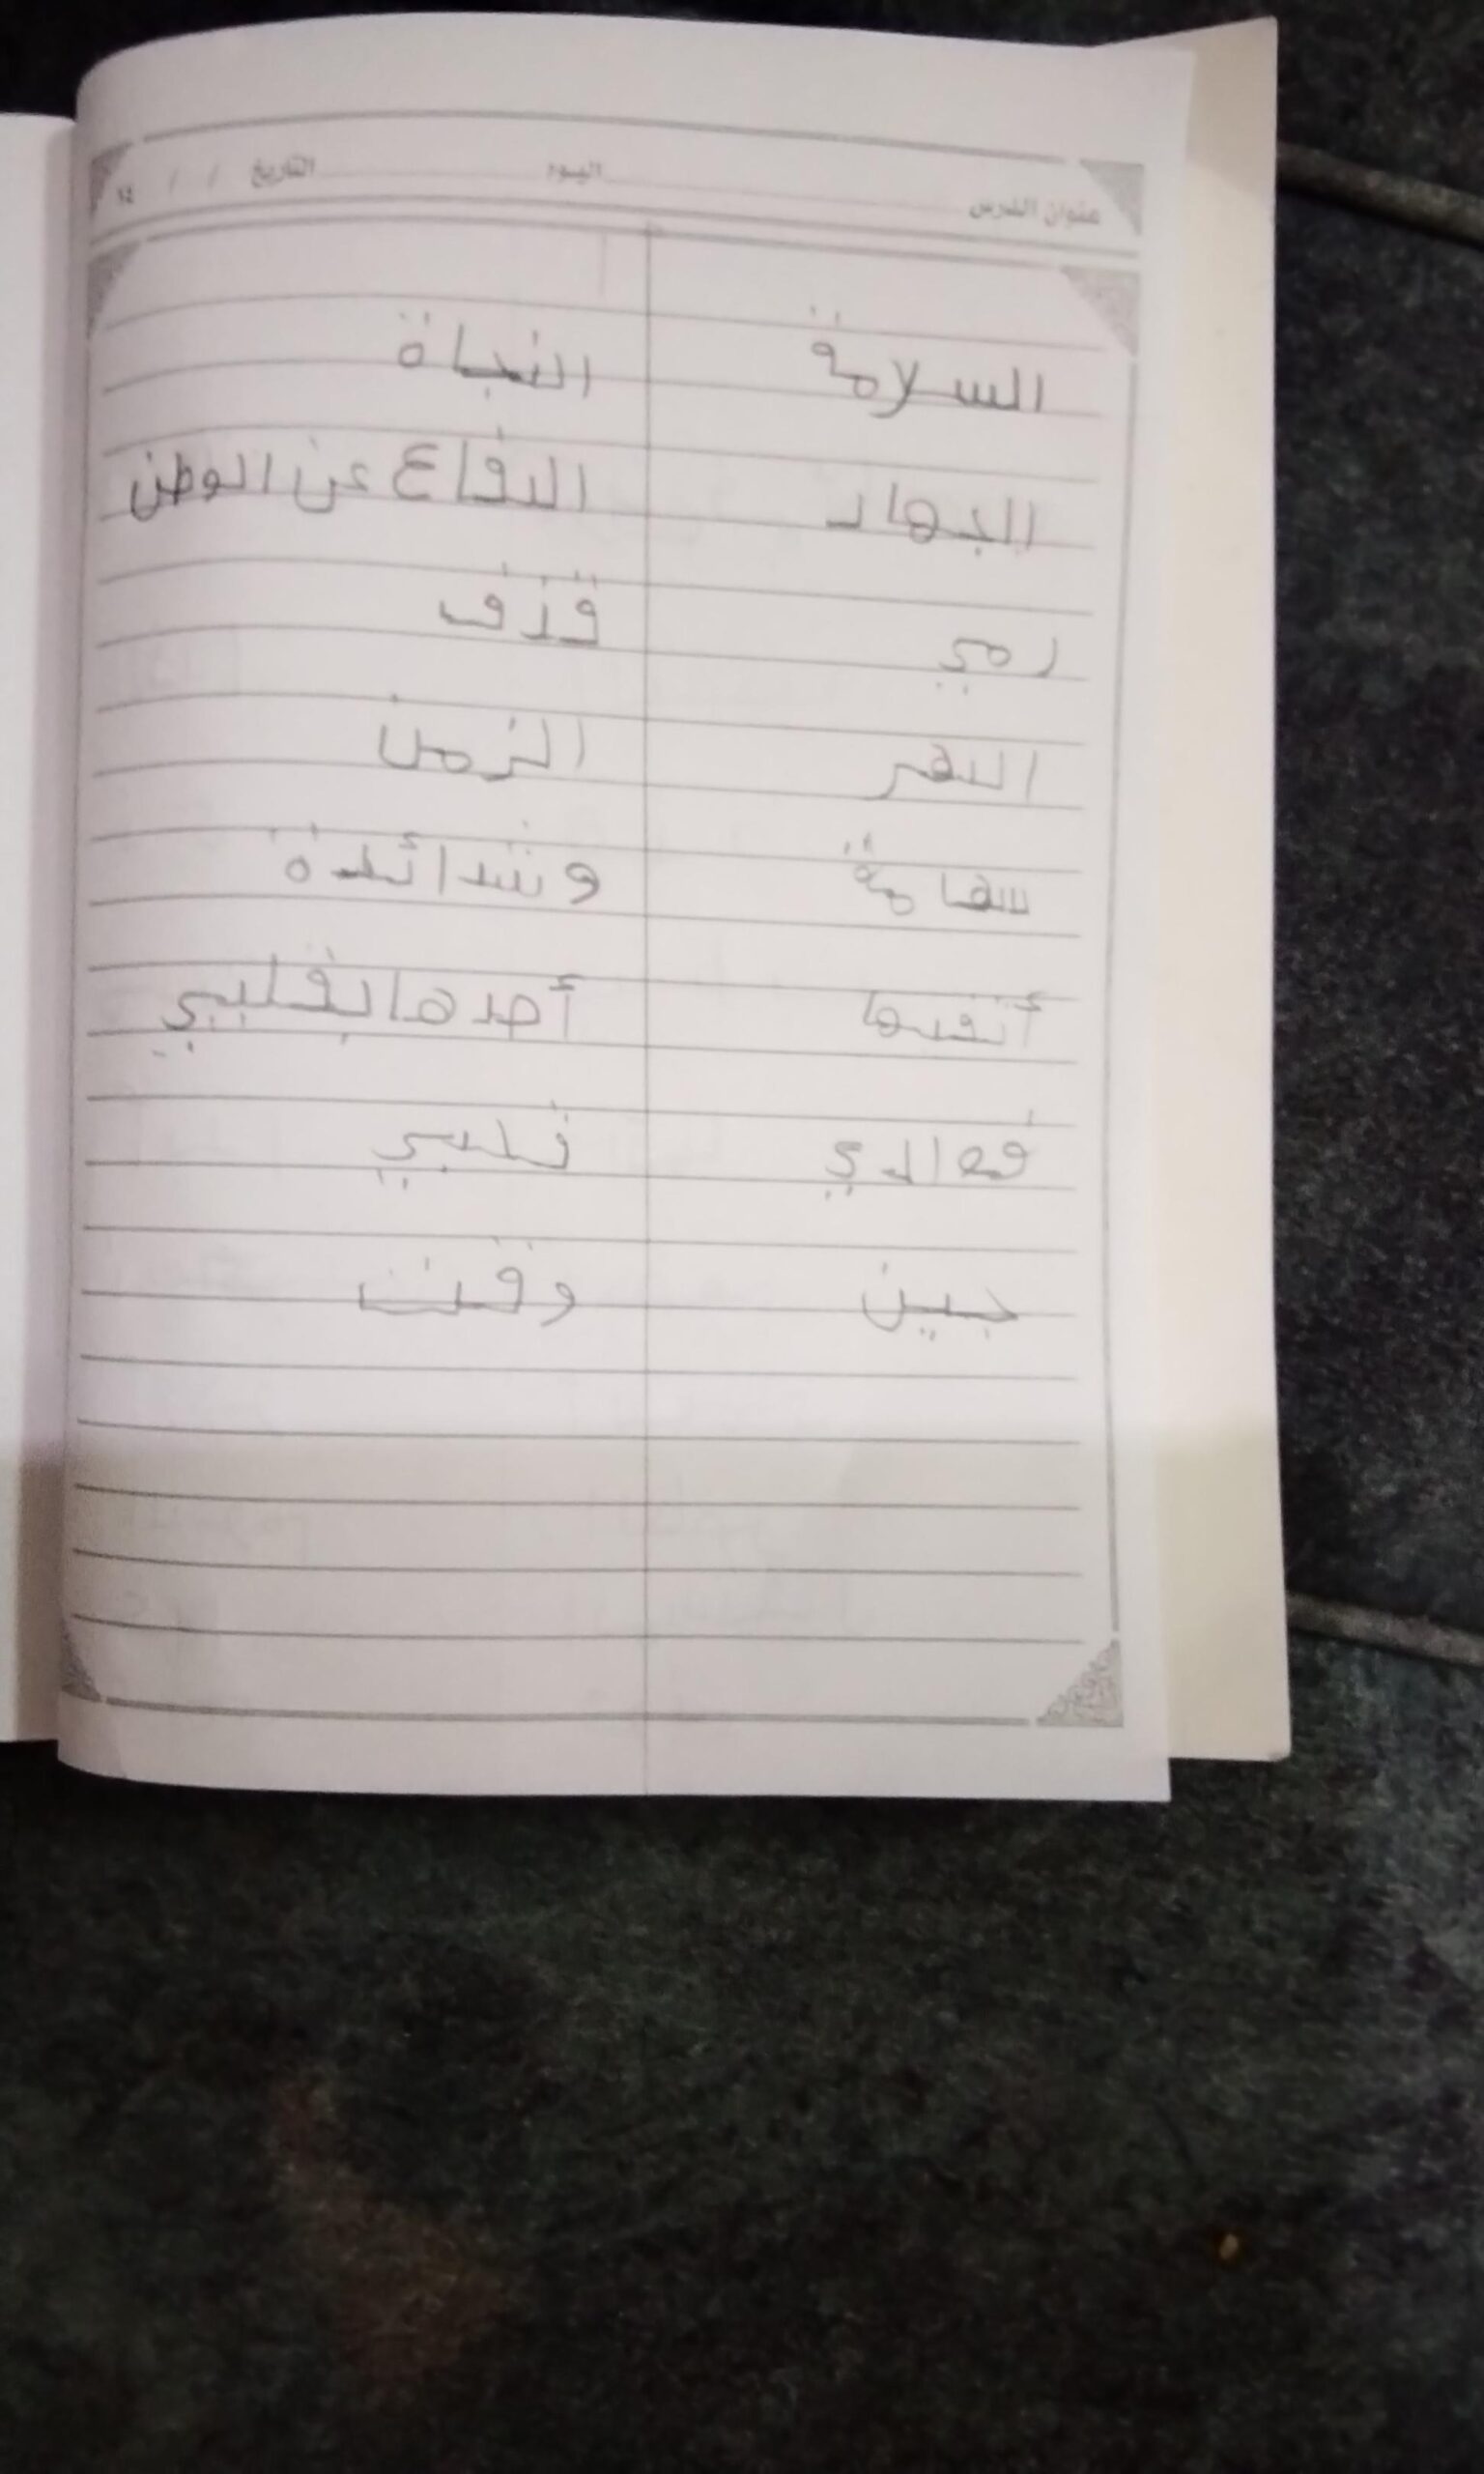 عنوان الدرس اليوم التاريخ / / ١٤
السلامة النجاة
الجهاد الدفاع عن الوطن
رمي قذف
الدهر الزمن
سهامة وشدائدة
أنفدها أجدها بقلبي
فؤالدي قلبي
حين وقت